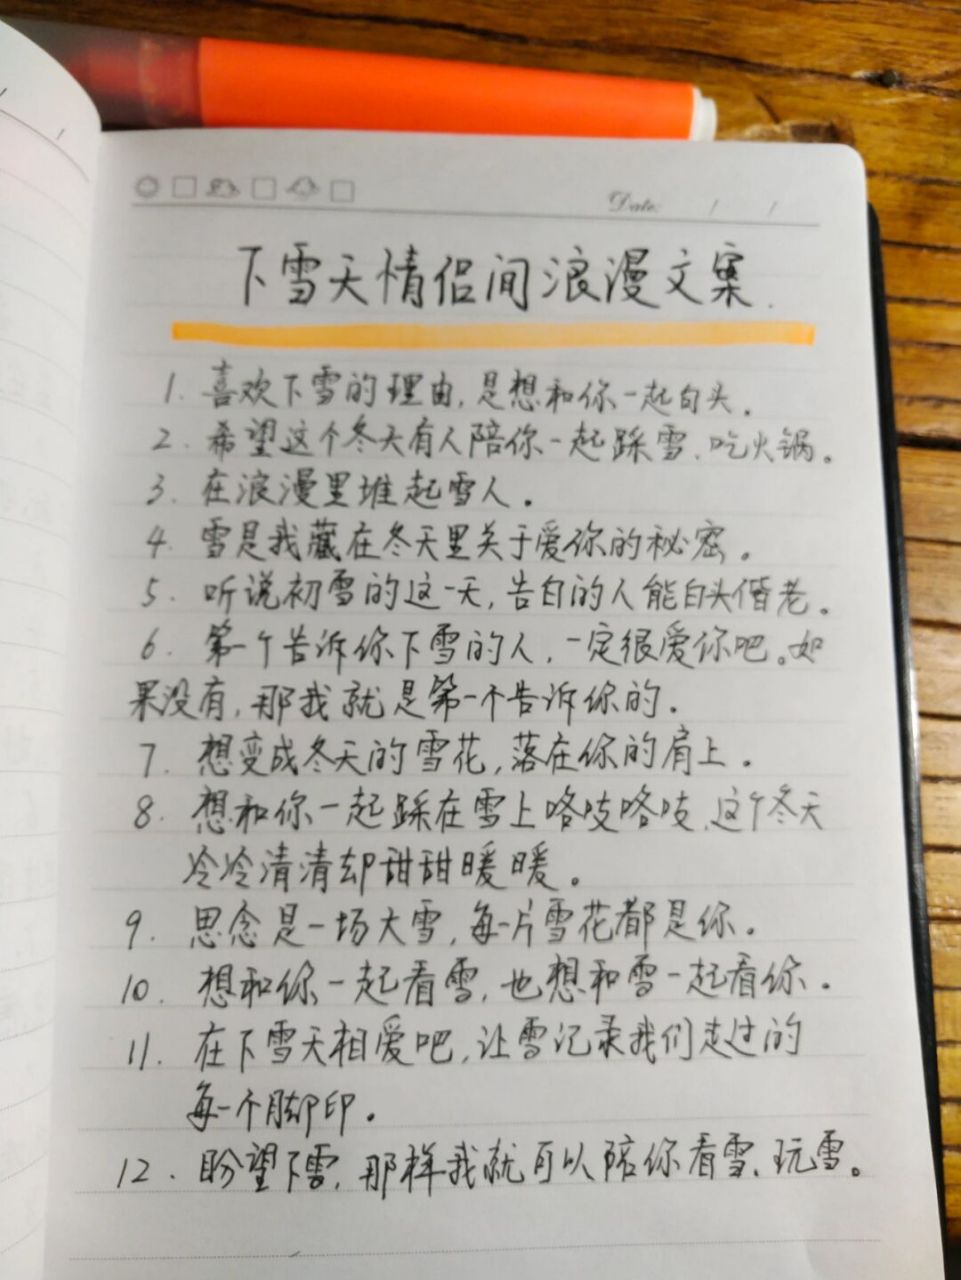 Date: / /
下雪天情侣间浪漫文案.
1. 喜欢下雪的理由,是想和你一起白头。
2. 希望这个冬天有人陪你一起踩雪、吃火锅。
3. 在浪漫里堆起雪人。
4. 雪是我藏在冬天里关于爱你的秘密。
5. 听说初雪的这一天,告白的人能白头偕老。
6. 第一个告诉你下雪的人,一定很爱你吧。如
果没有,那我就是第一个告诉你的.
7. 想变成冬天的雪花,落在你的肩上。
8. 想和你一起踩在雪上咯吱咯吱、这个冬天
冷冷清清却甜甜暖暖。
9. 思念是一场大雪,每一片雪花都是你。
10. 想和你一起看雪,也想和雪一起看你。
11. 在下雪天相爱吧,让雪记录我们走过的
每一个脚印。
12. 盼望下雪,那样我就可以陪你看雪、玩雪。